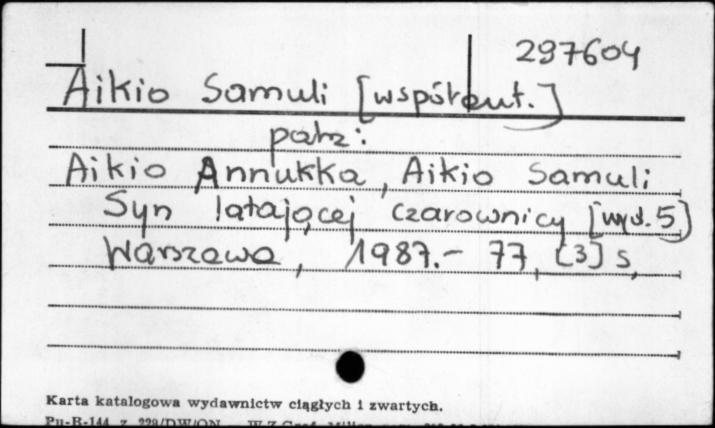 297604
Aikio Samuli [współaut.]
patrz:
Aikio Annukka, Aikio Samuli
Syn latającej czarownicy [wyd. 5]
Warszawa, 1987.- 77, [3] s.
Karta katalogowa wydawnictw ciągłych i zwartych.
Pu-R-144 z. 229/DW/ON